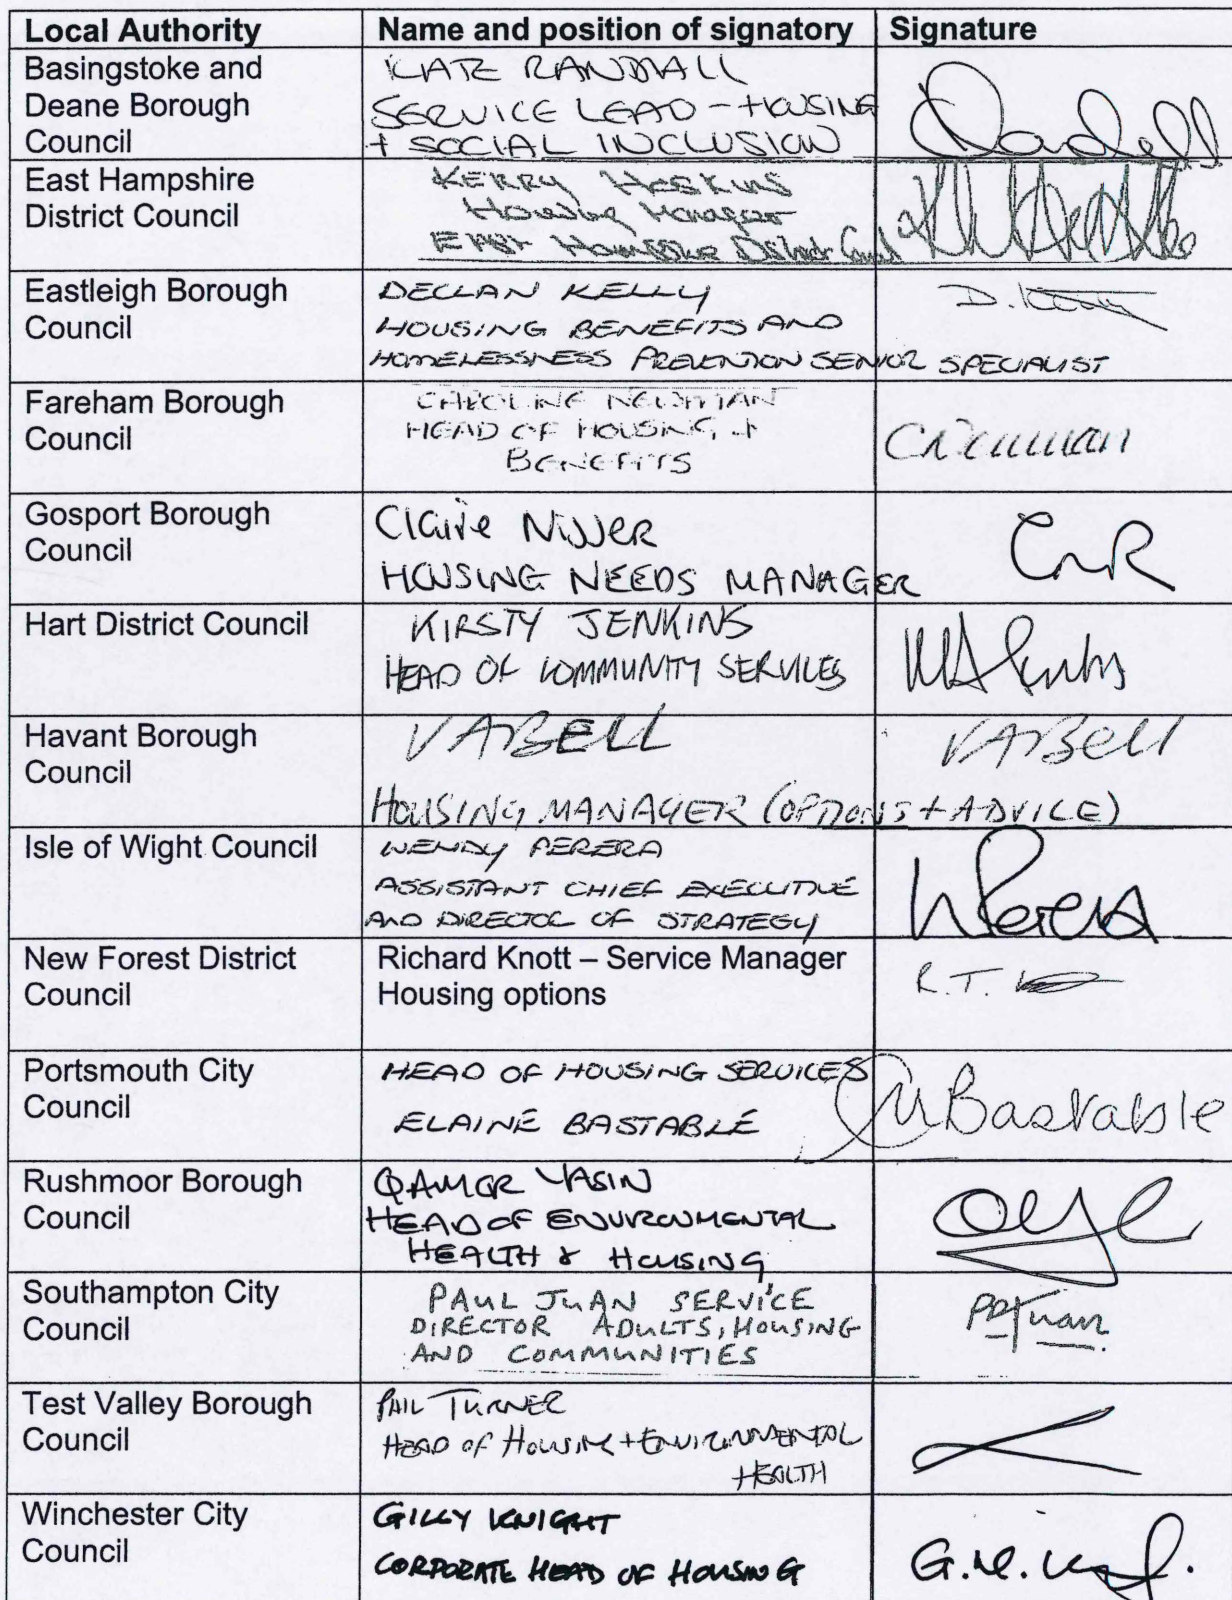 Local Authority Name and position of signatory Signature
Basingstoke and
Deane Borough
Council
KATE RANDALL
SERVICE LEAD - HOUSING
+ SOCIAL INCLUSION
East Hampshire
District Council
KERRY HOSKINS
Housing Manager
East Hampshire District Council
Eastleigh Borough
Council
DECLAN KELLY
HOUSING BENEFITS AND
HOMELESSNESS PREVENTION SENIOR SPECIALIST
D. Kelly
Fareham Borough
Council
CAROLINE NEWMAN
HEAD OF HOUSING +
BENEFITS
CNewman
Gosport Borough
Council
Claire
HOUSING NEEDS MANAGER
Hart District Council
KIRSTY JENKINS
HEAD OF COMMUNITY SERVICES
Havant Borough
Council
V A BELL
HOUSING MANAGER (OPTIONS + ADVICE)
V A Bell
Isle of Wight Council
WENDY PERERA
ASSISTANT CHIEF EXECUTIVE
AND DIRECTOR OF STRATEGY
W Perera
New Forest District
Council
Richard Knott – Service Manager
Housing options
R.T.
Portsmouth City
Council
HEAD OF HOUSING SERVICES
ELAINE BASTABLE
Bastable
Rushmoor Borough
Council
QAMER YASIN
HEAD OF ENVIRONMENTAL
HEALTH & HOUSING
Southampton City
Council
PAUL JUAN SERVICE
DIRECTOR ADULTS, HOUSING
AND COMMUNITIES
PJuan
Test Valley Borough
Council
PHIL TURNER
HEAD OF HOUSING + ENVIRONMENTAL
HEALTH
Winchester City
Council
GILLY KNIGHT
CORPORATE HEAD OF HOUSING